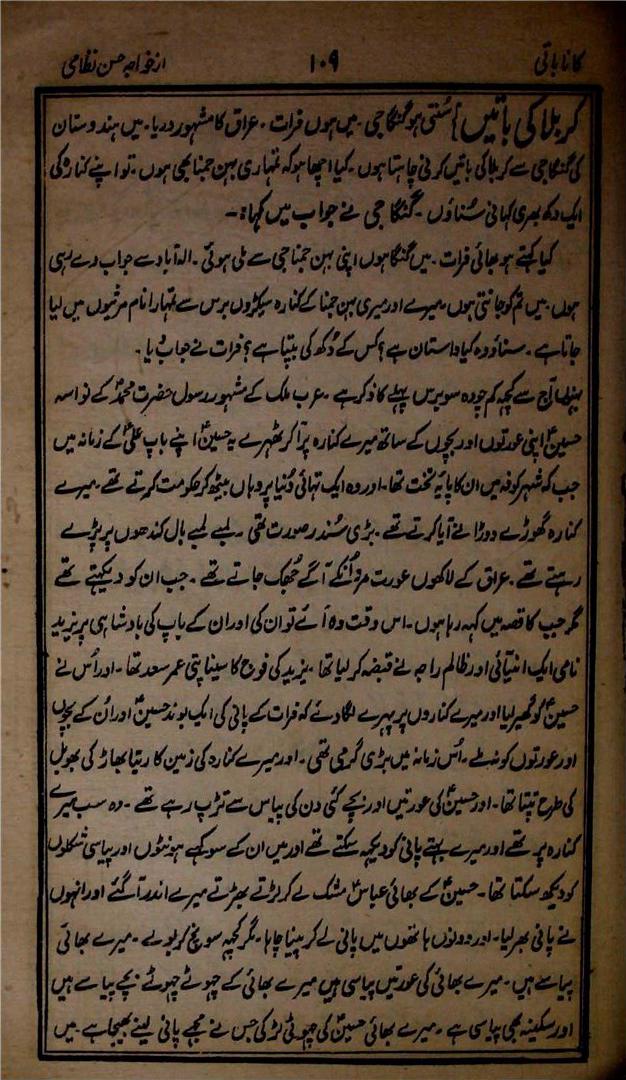 کانا باتی ۱۰۹ از خواجہ حسن نظامی
کربلا کی باتیں] سُنتی ہو گنگا جی ۔ میں ہوں فرات ۔ عراق کا مشہور دریا ۔ میں ہندوستان
کی گنگا جی سے کربلا کی باتیں کرنی چاہتا ہوں ۔ کیا اچھا ہو کہ تمہاری بہن جمنا بھی ہوں ۔ تو اپنے کنارہ کی
ایک دکھ بھری کہانی سُناؤں ۔ گنگا جی نے جواب میں کہا :۔
کیا کہتے ہو بھائی فرات ۔ میں گنگا ہوں اپنی بہن جمنا جی سے ملی ہوئی ۔ الہ آباد سے جواب دے رہی
ہوں ۔ میں تم کو جانتی ہوں ۔ میرے اور میری بہن جمنا کے کنارہ سیکڑوں برس سے تمہارا نام مرثیوں میں لیا
جاتا ہے ۔ سناؤ وہ کیا داستان ہے ؟ کس کے دُکھ کی بپتا ہے ؟ فرات نے جواب دیا ۔
بہنا آج سے کچھ کم چودہ سو برس پہلے کا ذکر ہے ۔ عرب ملک کے مشہور رسول حضرت محمدؐ کے نواسہ
حسینؑ اپنی عورتوں اور بچوں کے ساتھ میرے کنارہ پر آ کر ٹھہرے یہ حسینؑ اپنے باپ علیؑ کے زمانہ میں
جب کہ شہر کوفہ میں ان کا پایۂ تخت تھا ۔ اور وہ ایک تہائی دُنیا پر وہاں بیٹھ کر حکومت کرتے تھے ۔ میرے
کنارہ گھوڑے دوڑانے آیا کرتے تھے ۔ بڑی سُندر صورت تھی ۔ لمبے لمبے بال کندھوں پر پڑے
رہتے تھے ۔ عراق کے لاکھوں عورت مرد اُنکے آگے جُھک جاتے تھے ۔ جب ان کو دیکھتے تھے
مگر جب کا قصہ میں کہہ رہا ہوں ۔ اس وقت وہ آئے تو ان کی اور ان کے باپ کی بادشاہی پر یزید
نامی ایک انیائی اور ظالم راجہ نے قبضہ کر لیا تھا ۔ یزید کی فوج کا سیناپتی عمر سعد تھا ۔ اور اُس نے
حسینؑ کو گھیر لیا اور میرے کناروں پر پہرے لگا دئے کہ فرات کے پانی کی ایک بوند حسینؑ اور اُن کے بچوں
اور عورتوں کو نہ ملے ۔ اُس زمانہ میں بڑی گرمی تھی ۔ اور میرے کنارہ کی زمین کا ریتا بھاڑ کی بھوبل
کی طرح تپتا تھا ۔ اور حسینؑ کی عورتیں اور بچے کئی دن کی پیاس سے تڑپ رہے تھے ۔ وہ سب میرے
کنارہ پر تھے اور میرے بہتے پانی کو دیکھ سکتے تھے اور میں ان کے سوکھے ہونٹوں اور پیاسی شکلوں
کو دیکھ سکتا تھا ۔ حسینؑ کے بھائی عباسؑ مشک لے کر لڑتے بھڑتے میرے اندر آ گئے اور انہوں
نے پانی بھر لیا ۔ اور دونوں ہاتھوں میں پانی لے کر پینا چاہا ۔ مگر کچھ سونچ کر بولے ۔ میرے بھائی
پیاسے ہیں ۔ میرے بھائی کی عورتیں پیاسی ہیں میرے بھائی کے چھوٹے چھوٹے بچے پیاسے ہیں
اور سکینہ بھی پیاسی ہے ۔ میرے بھائی حسینؑ کی چھوٹی لڑکی جس نے مجھے پانی لینے بھیجا ہے ۔ میں